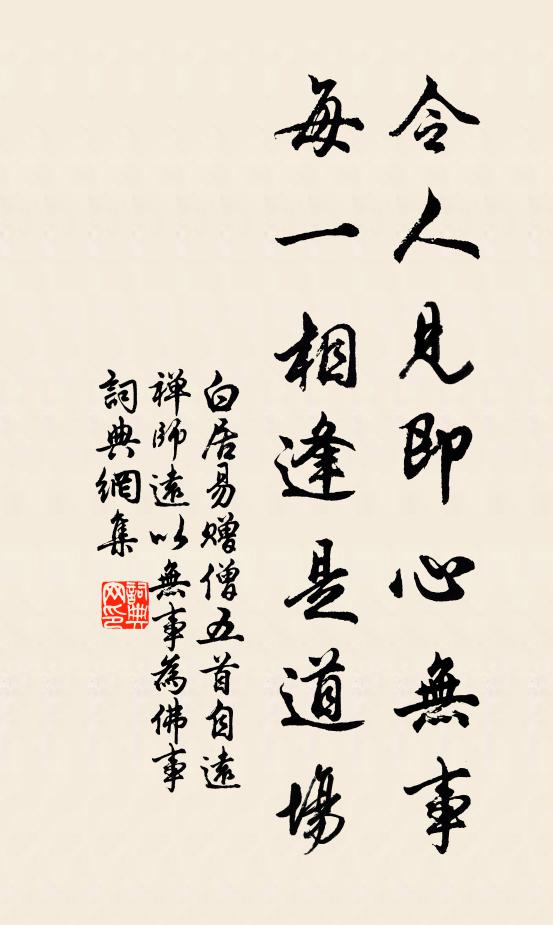 令人見即心無事
每一相逢是道場
白居易贈僧五首自遠
禅師遠以無事為佛事
詞典網集
詞典网印